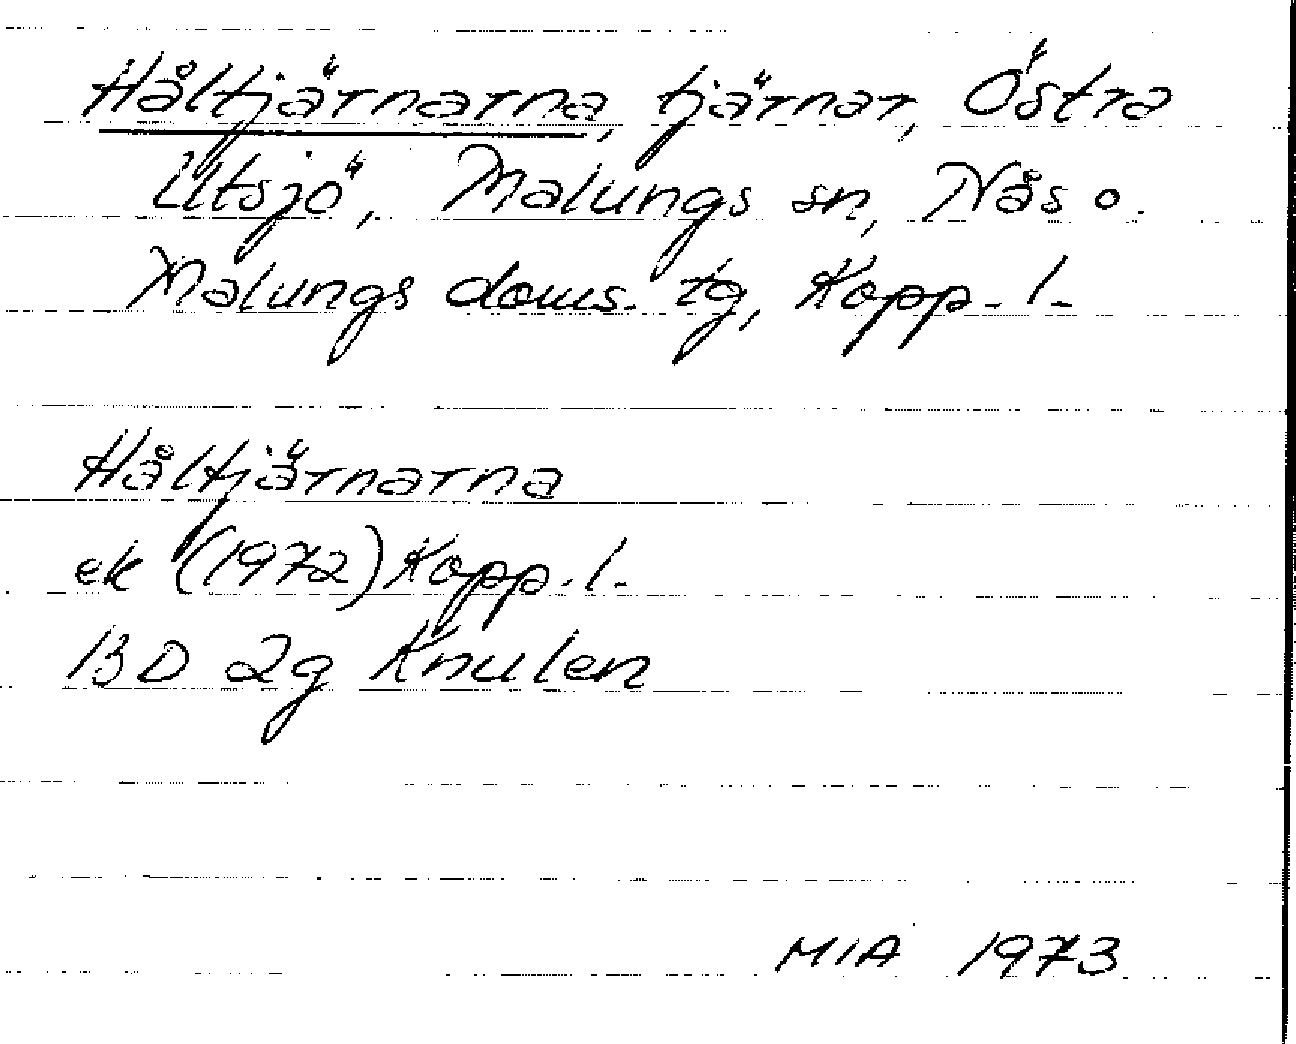 Håltjärnarna, tjärnar, Östra
Utsjö, Malungs sn, Nås o.
Malungs doms. tg, Kopp. l.
Håltjärnarna
ek (1972) Kopp. l.
13 D 2g Knulen
MIA 1973